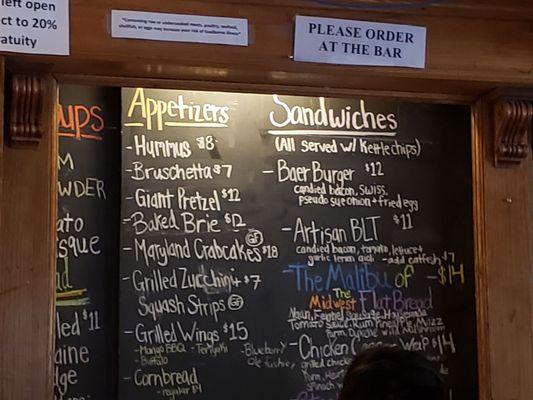 left open
ct to 20%
ratuity
"Consuming raw or undercooked meats, poultry, seafood,
shellfish, or eggs may increase your risk of foodborne illness"
PLEASE ORDER
AT THE BAR
ups
M
WDER
ato
sque
led $11
aine
dge
Appetizers
-Hummus $8
-Bruschetta $7
-Giant Pretzel $12
-Baked Brie $12
-Maryland Crabcakes GF $18
-Grilled Zucchini + $7
Squash Strips GF
-Grilled Wings $15
-Mango BBQ -Teriyaki -Blueberry
-Buffalo Ole fashion
-Cornbread
-regular $4
Sandwiches
(All served w/ Kettle chips)
-Baer Burger $12
candied bacon, swiss,
pseudo sue onion + fried egg
-Artisan BLT $11
candied bacon, tomato, lettuce +
garlic lemon aioli -add catfish $7
-The Malibu of -$14
The
Midwest Flat Bread
Naan, Fennel Sausage,
Tomato Sauce, Rum Pineapple, Mozz
Parm,
-Chicken Wrap $14
grilled
Parm,
Spinach